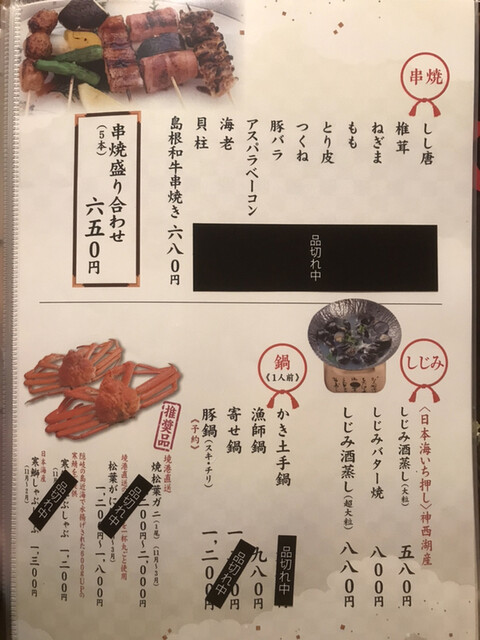 串焼
しし唐
椎茸
ねぎま
もも
とり皮
つくね
豚バラ
アスパラベーコン
海老
貝柱
品切れ中
島根和牛串焼き 六八〇円
串焼盛り合わせ
(5本)
六五〇円
しじみ
〈日本海いち押し〉神西湖産
しじみ酒蒸し(大粒) 五八〇円
しじみバター焼 八〇〇円
しじみ酒蒸し(超大粒) 八八〇円
鍋
《1人前》
かき土手鍋
品切れ中
漁師鍋 九八〇円
寄せ鍋
品切れ中
豚鍋(スキ・チリ) 一、二〇〇円
〈予約〉
推奨品
境港直送
焼松葉ガニ
(11月〜3月)
二、〇〇〇円
境港直送
松葉がに
一、二〇〇円〜一、八〇〇円
品切れ中
一、二〇〇円
品切れ中
日本海産
寒鰤しゃぶ
一、三〇〇円
品切れ中